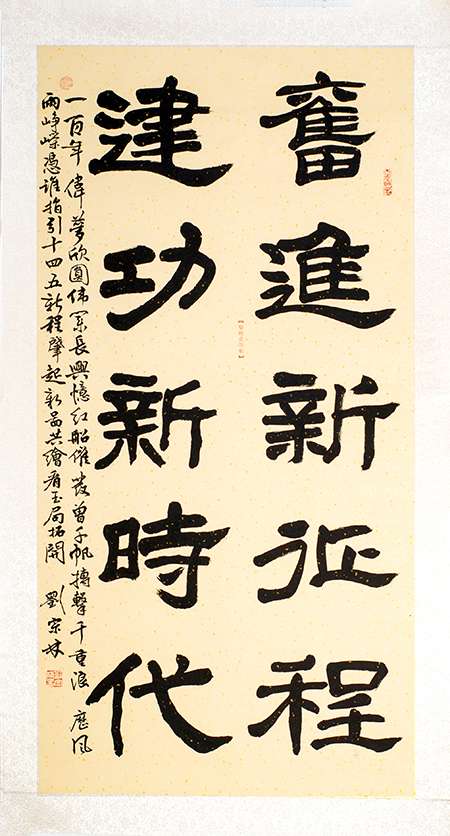 奮進新征程
建功新時代
一百年偉夢欣圓偉業長興憶紅船催發曾千帆搏擊千重浪歷風
雨崢嶸憑誰指引十四五新程肇起新圖共繪看玉局拓開 劉宗林